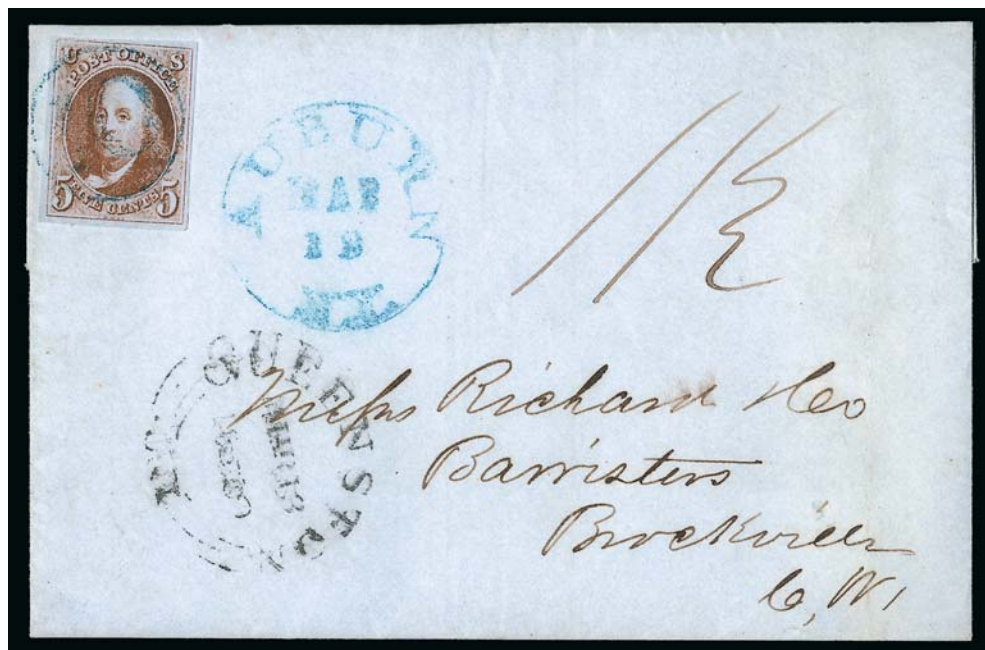 U S
POST OFFICE
5 FIVE CENTS 5
AUBURN
MAR
19
N.Y.
1/3
QUEENSTON
U.C.
Messrs Richard & Co
Barristers
Brockville
C, W,